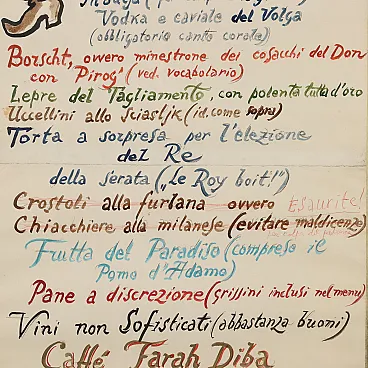 Vodka e caviale del Volga
(obbligatorio canto corale)
Borscht, ovvero minestrone dei cosacchi del Don
con "Pirog" (ved. vocabolario)
Lepre del Tagliamento, con polenta tutta d'oro
Uccellini allo Sciasljk (id. come sopra)
Torta a sorpresa per l'elezione
del Re
della serata („Le Roy boit!")
Crostoli alla furlana ovvero Esaurite!
Chiacchiere alla milanese (evitare maldicenze)
Frutta del Paradiso (compreso il
Pomo d'Adamo)
Pane a discrezione (grissini inclusi nel menu)
Vini non Sofisticati (abbastanza buoni)
Caffé Farah Diba